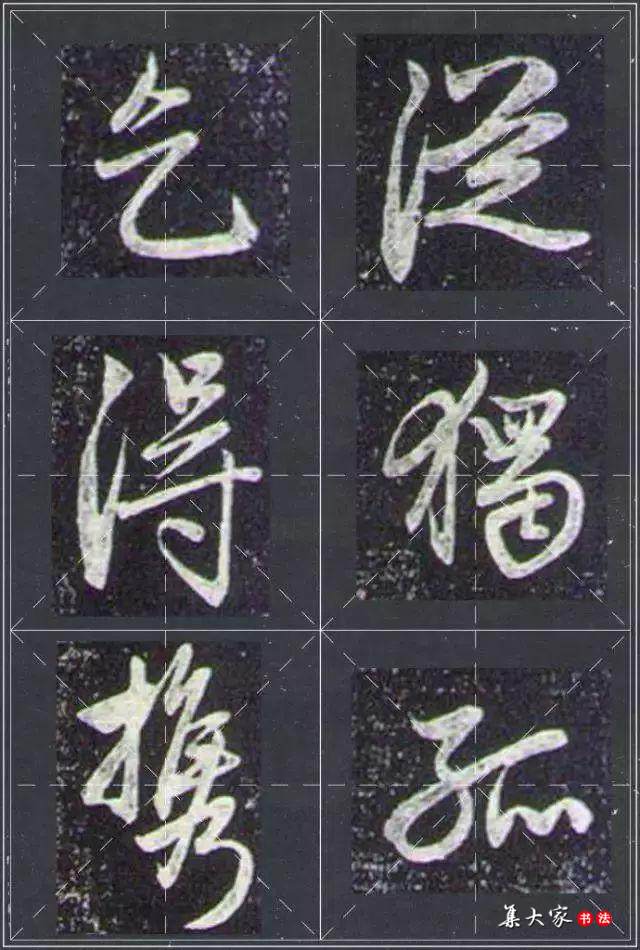 從獨孤
乞得携
集大家书法